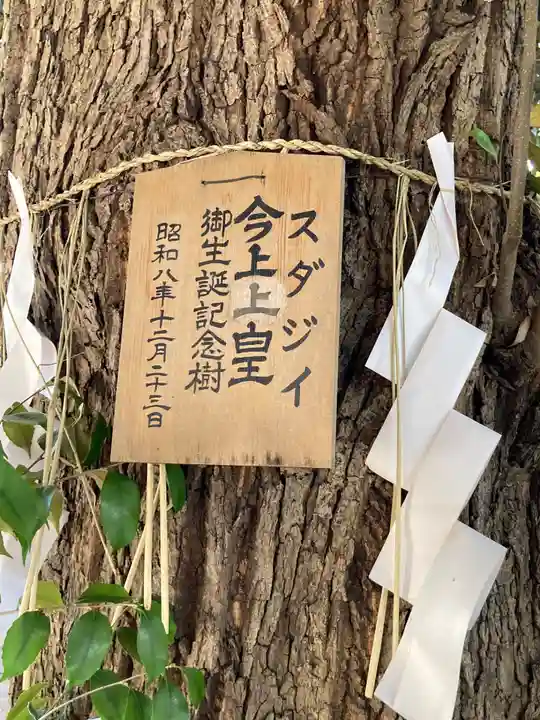 スダジイ
今上上皇
御生誕記念樹
昭和八年十二月二十三日